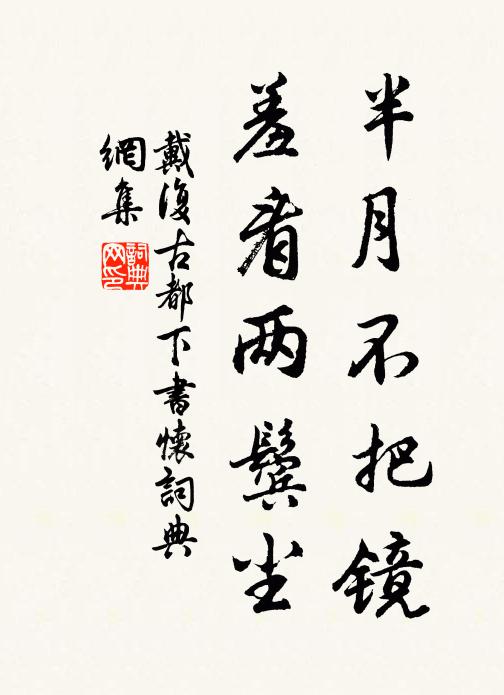 半月不把镜
羞看两鬓尘
戴復古都下書懷詞典
網集
詞典
网印